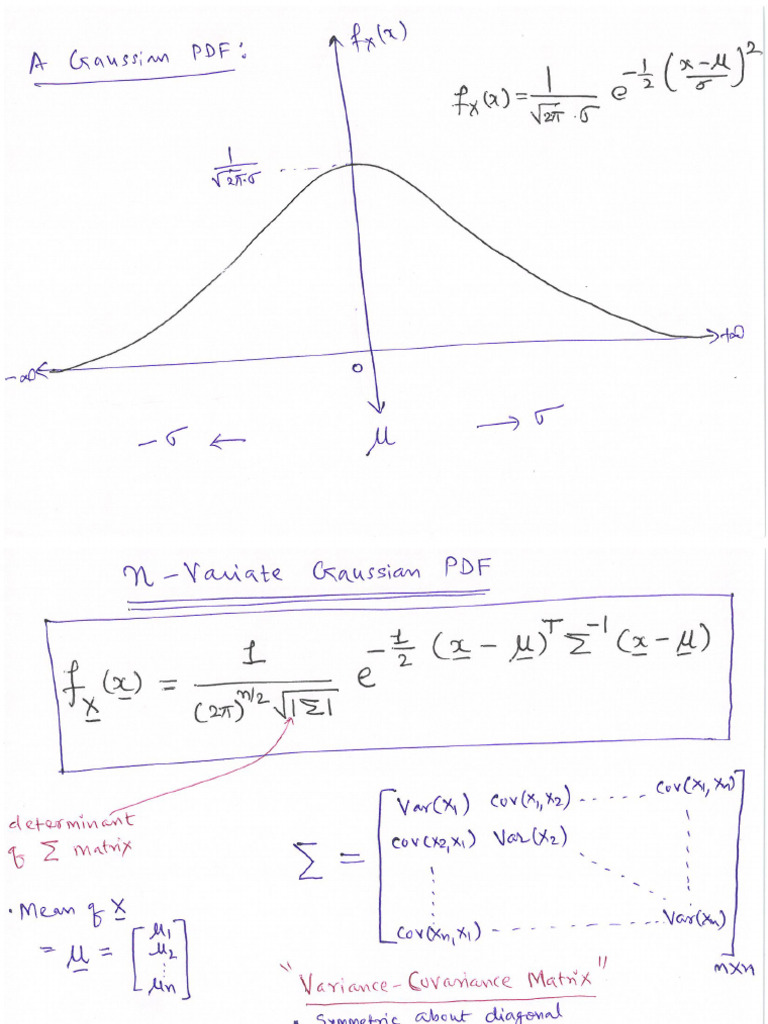 A Gaussian PDF:
f_X(x)
f_X(x) = 1/(√2π · σ) e^(-1/2 ((x-μ)/σ)^2)
1/(√2π·σ)
-∞
+∞
0
-σ ←
μ
→ σ
n-Variate Gaussian PDF
f_X(x) = 1/((2π)^(n/2) √|Σ|) e^(-1/2 (x-μ)^T Σ^-1 (x-μ))
determinant
of Σ matrix
Σ = [ Var(X1) cov(X1,X2) ----- cov(X1,Xn)
cov(X2,X1) Var(X2)
cov(Xn,X1) ----- Var(Xn) ] nxn
• Mean of X
= μ = [ μ1
μ2
⋮
μn ]
"Variance-Covariance Matrix"
• Symmetric about diagonal